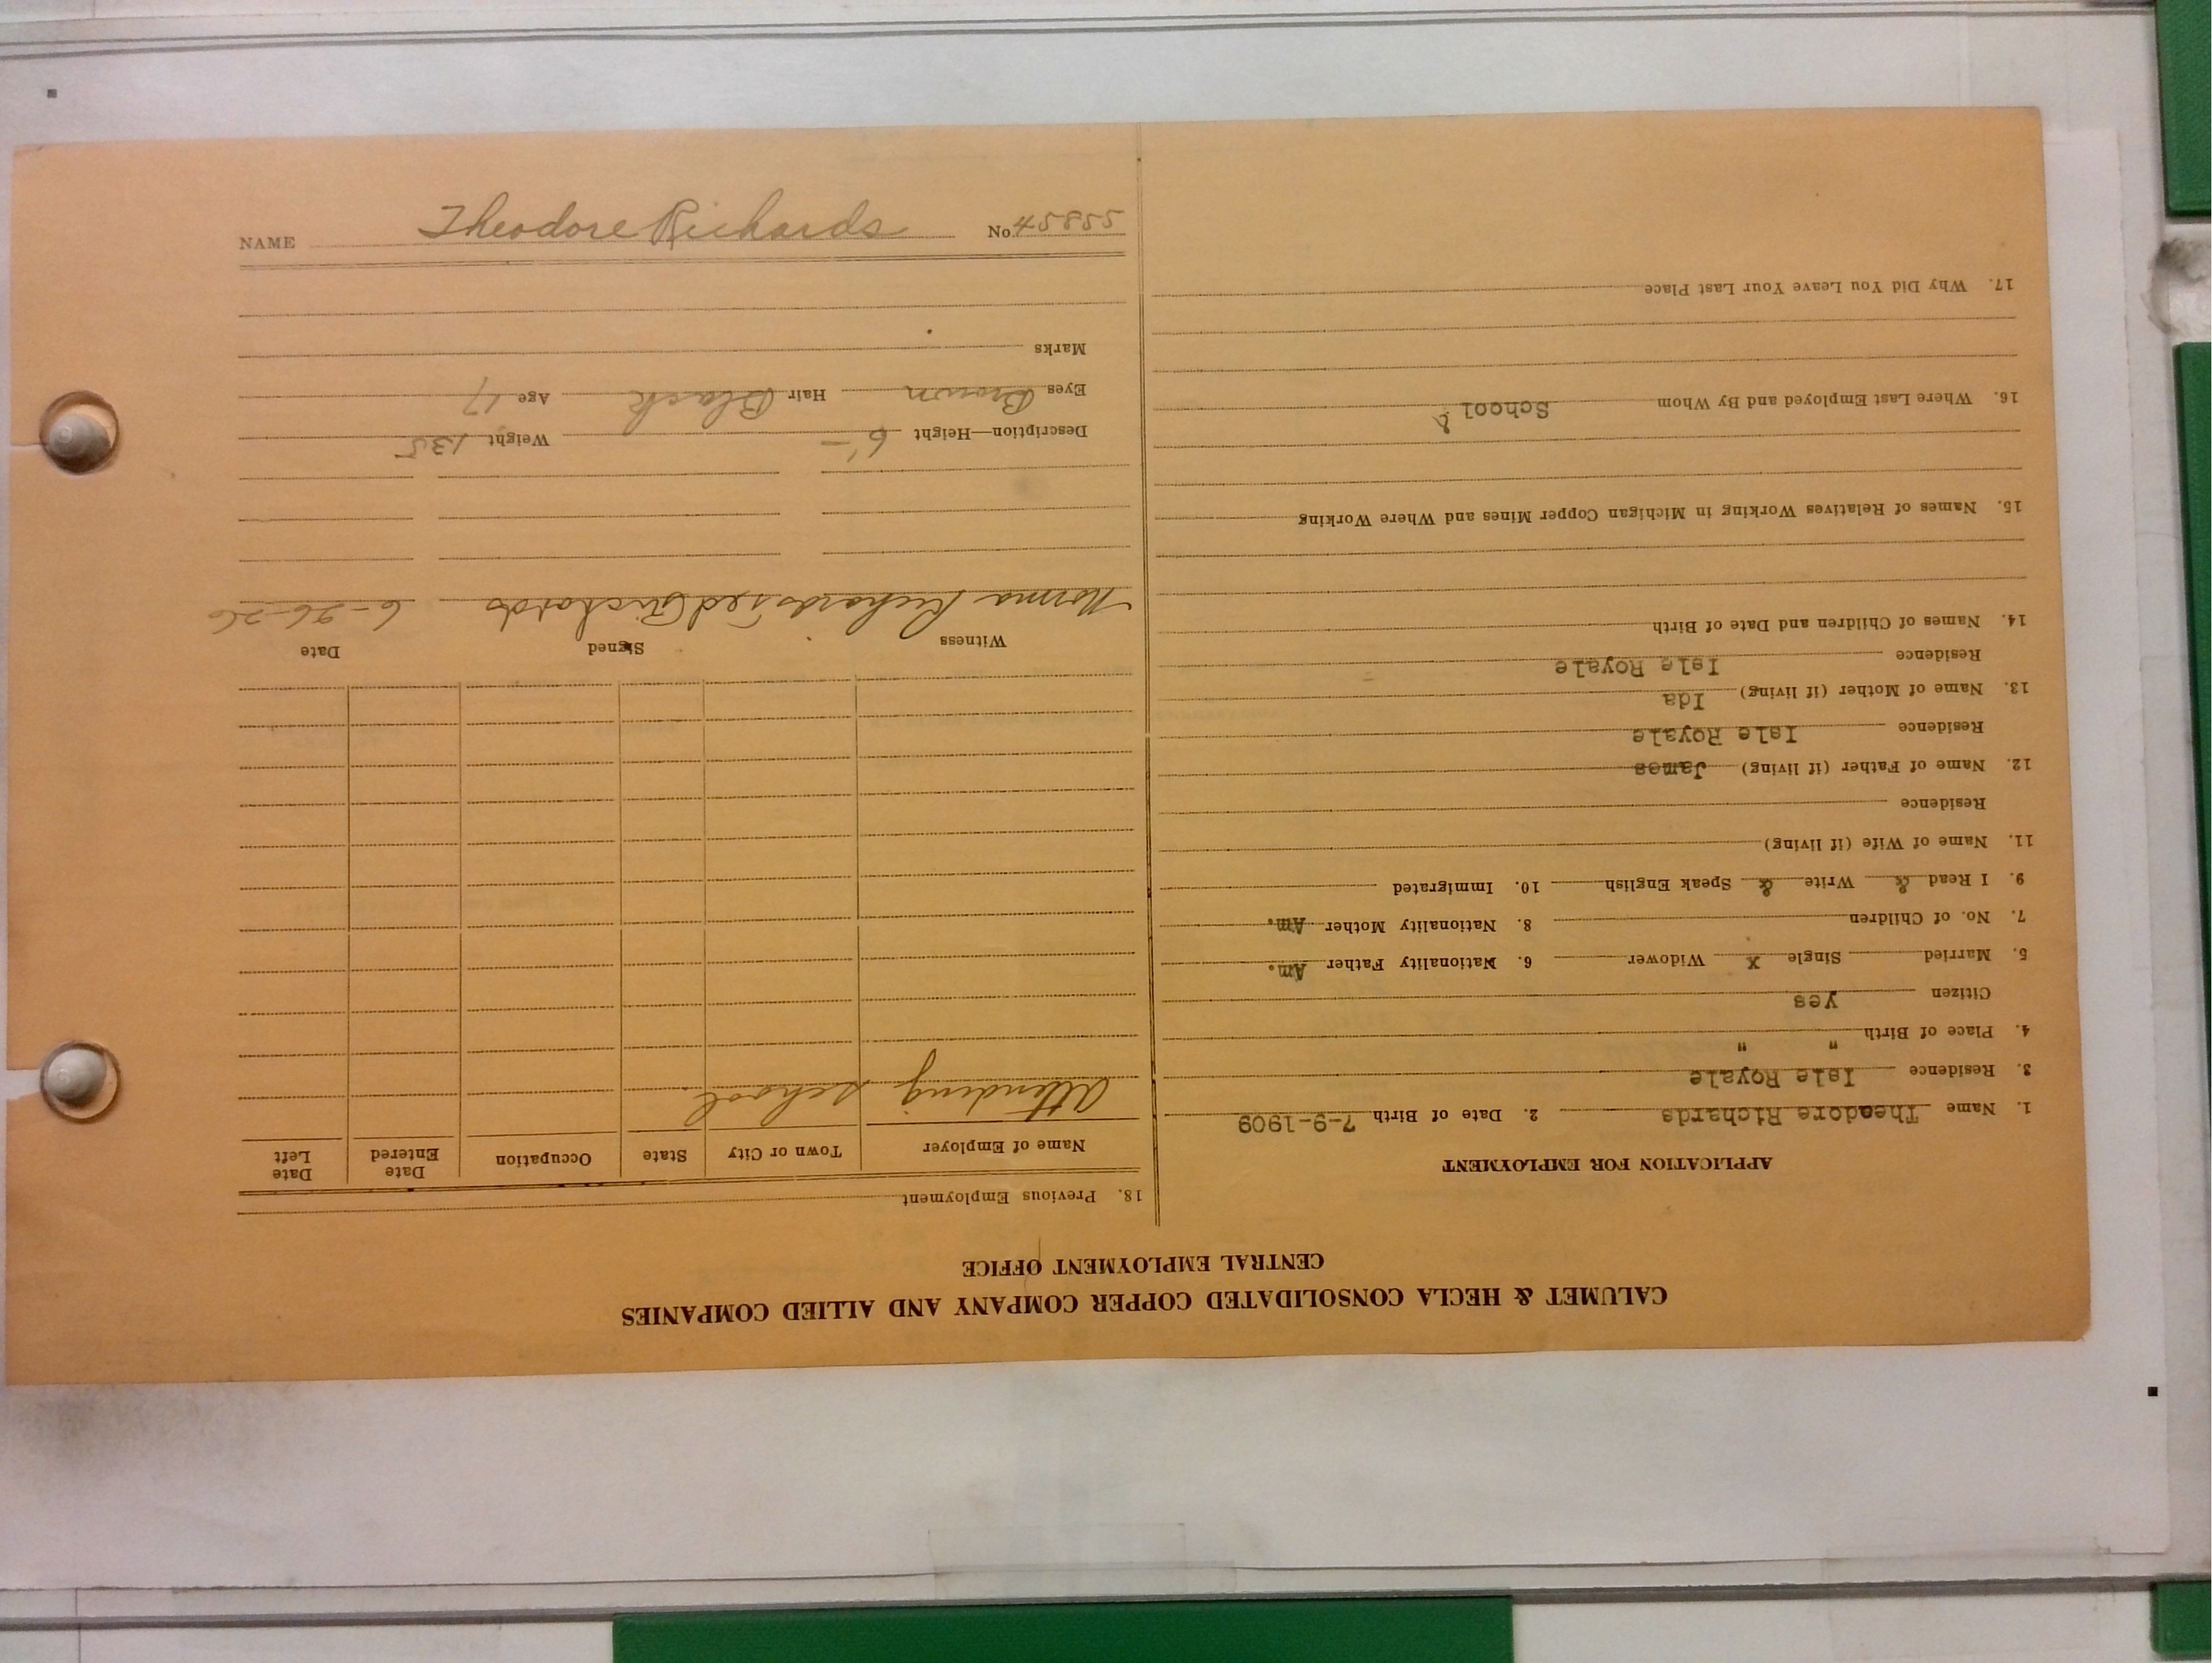 CALUMET & HECLA CONSOLIDATED COPPER COMPANY AND ALLIED COMPANIES
CENTRAL EMPLOYMENT OFFICE
APPLICATION FOR EMPLOYMENT
1. Name Theodore Richards 2. Date of Birth 7-9-1909
3. Residence Isle Royale
4. Place of Birth " "
Citizen yes
5. Married Single X Widower 6. Nationality Father Am.
7. No. of Children 8. Nationality Mother Am.
9. I Read & Write & Speak English 10. Immigrated
11. Name of Wife (if living)
Residence
12. Name of Father (if living) James
Residence Isle Royale
13. Name of Mother (if living) Ida
Residence Isle Royale
14. Names of Children and Date of Birth
15. Names of Relatives Working in Michigan Copper Mines and Where Working
16. Where Last Employed and By Whom School &
17. Why Did You Leave Your Last Place
18. Previous Employment
Name of Employer Town or City State Occupation Date Entered Date Left
Attending school
Witness Signed Date
Norma Richards Ted Richards 6-26-26
Description—Height 6'— Weight 135
Eyes Brown Hair Black Age 17
Marks
NAME Theodore Richards No. 45855